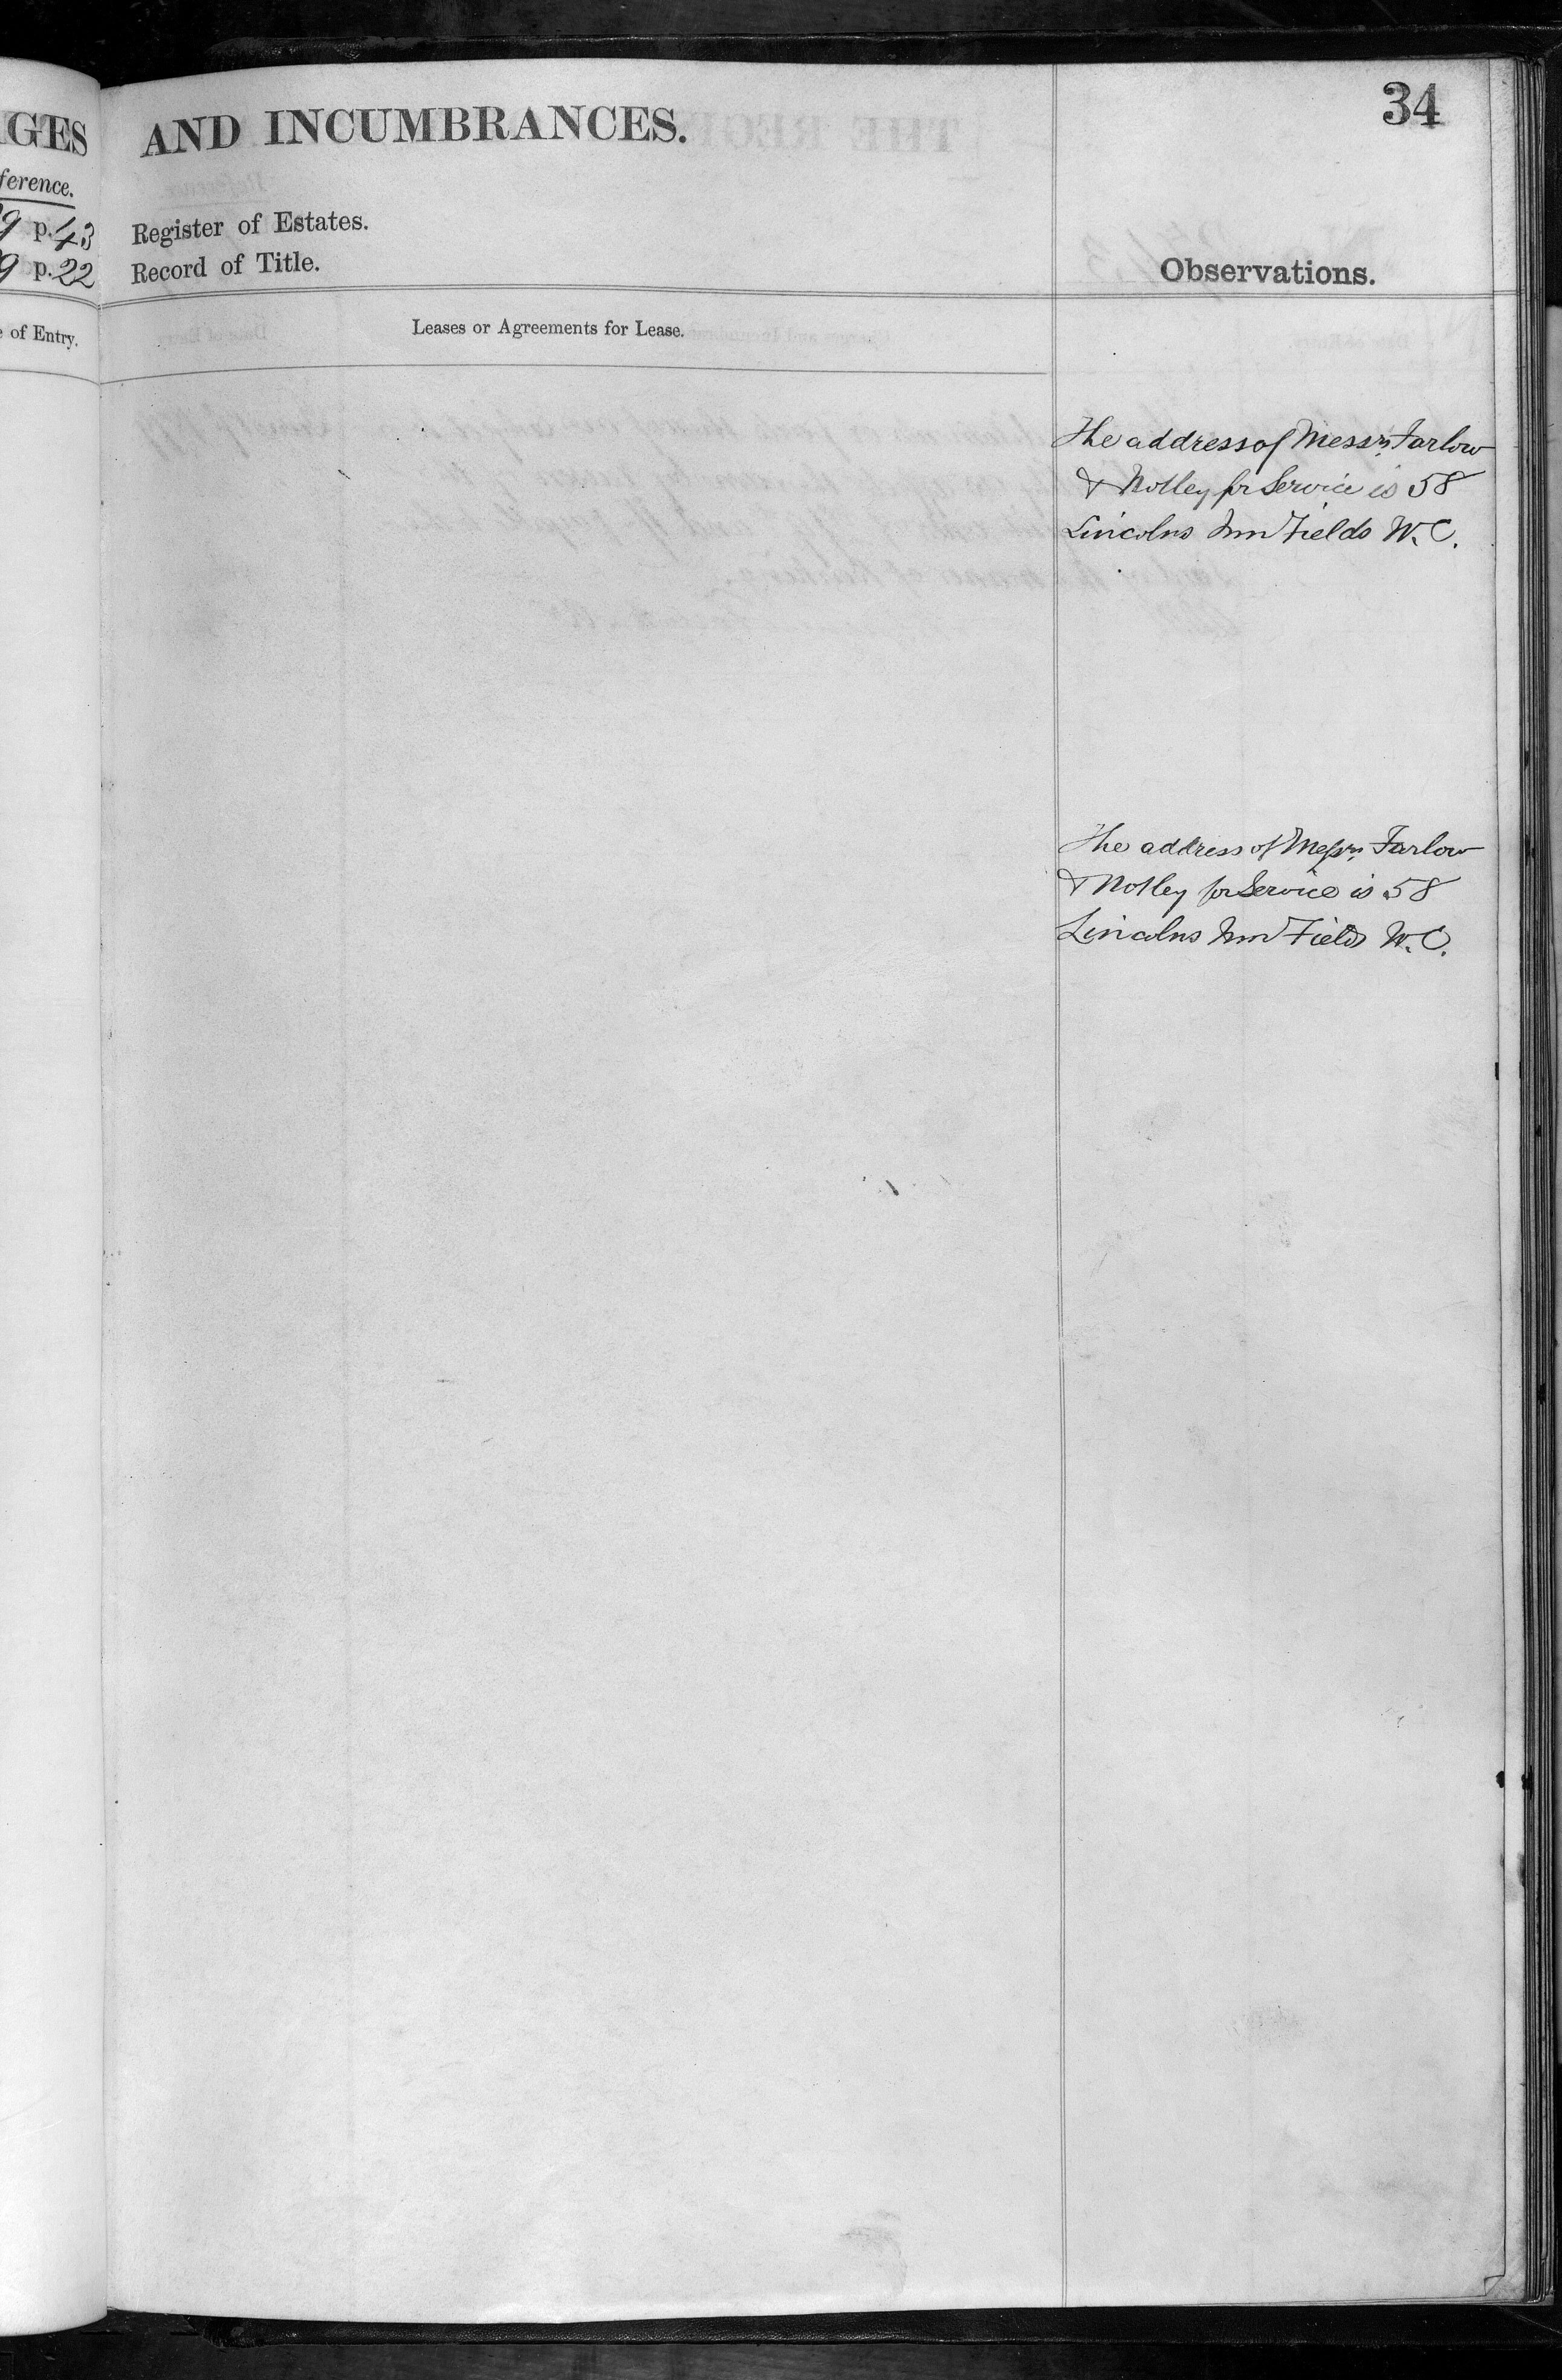 34
GES AND INCUMBRANCES.
ference.
9 p. 43 Register of Estates.
9 p. 22 Record of Title.
Observations.
of Entry.
Leases or Agreements for Lease.
The address of Messrs Farlow
& Notley for Service is 58
Lincolns Inn Fields W.C.
The address of Messrs Farlow
& Notley for Service is 58
Lincolns Inn Fields W.C.